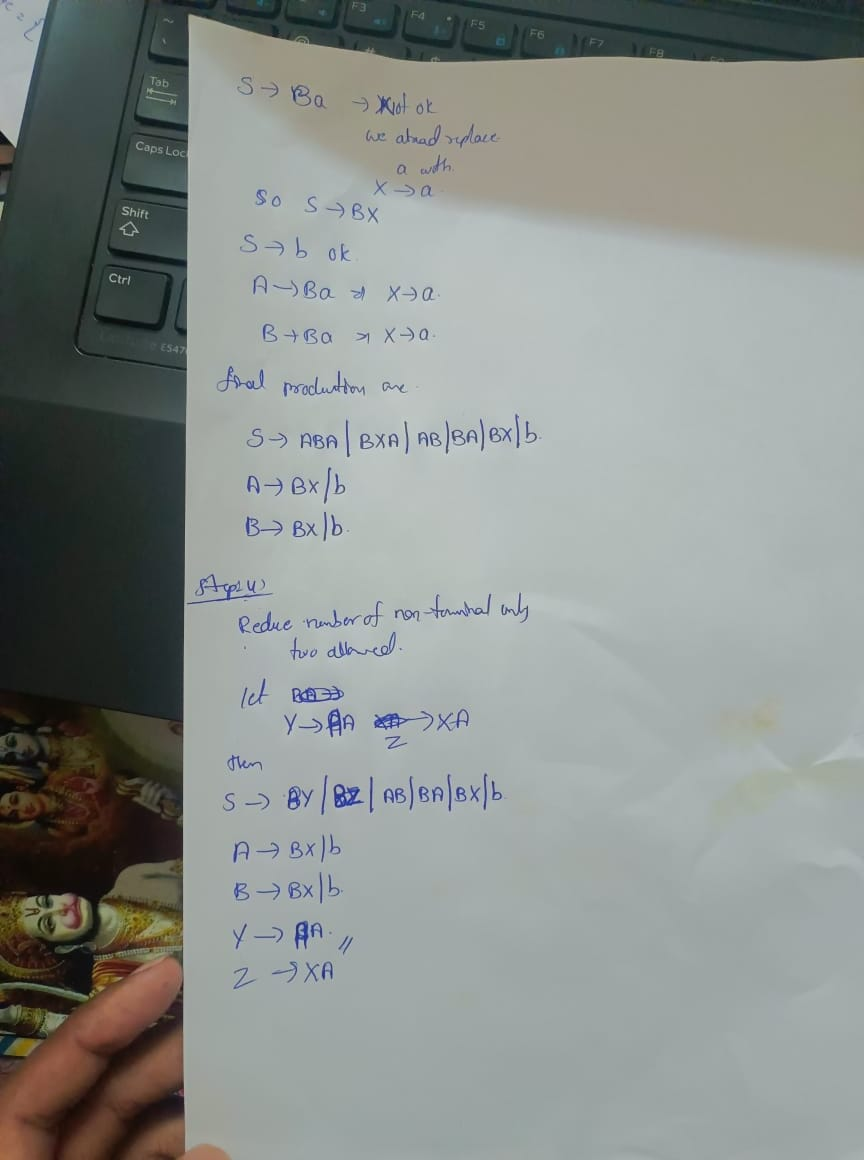 F3 F4 F5 F6 F7 F8
Tab
Caps Loc
Shift
Ctrl
E547
S → Ba → Not ok
we replace
a with
X → a.
So S → BX
S → b ok.
A → Ba ⇒ X → a.
B → Ba ⇒ X → a.
final production are.
S → ABA | BXA | AB | BA | BX | b.
A → BX | b
B → BX | b.
Reduce number of non-terminal only
two allowed.
let
Y → A → XA
Z
then
S → BY | BZ | AB | BA | BX | b.
A → BX | b
B → BX | b.
Y → BA. //
Z → XA